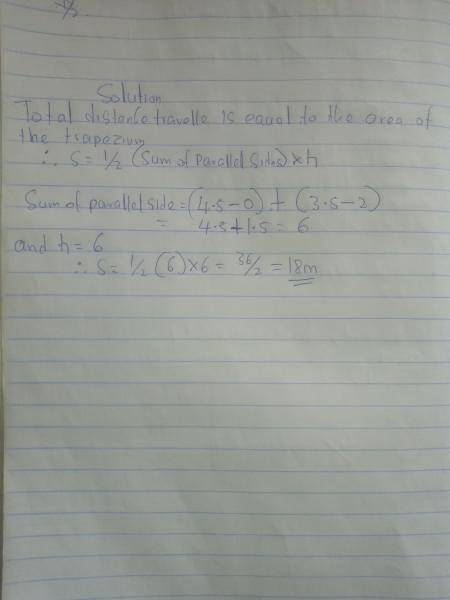 Solution
Total distance travelle is equal to the area of
the trapezium
∴ S = 1/2 (Sum of Parallel Sides) × h
Sum of parallel side = (4.5 - 0) + (3.5 - 2)
= 4.5 + 1.5 = 6
and h = 6
∴ S = 1/2 (6) × 6 = 36/2 = 18m